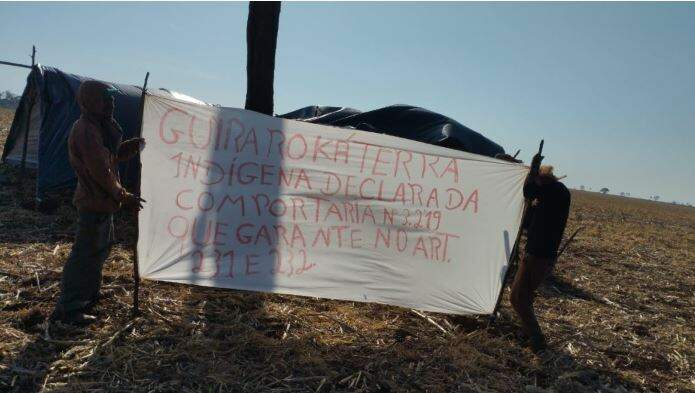 GUIRAROKÁ TERRA
INDÍGENA DECLARADA
COM PORTARIA N 3.219
QUE GARANTE NO ART.
231 E 232.